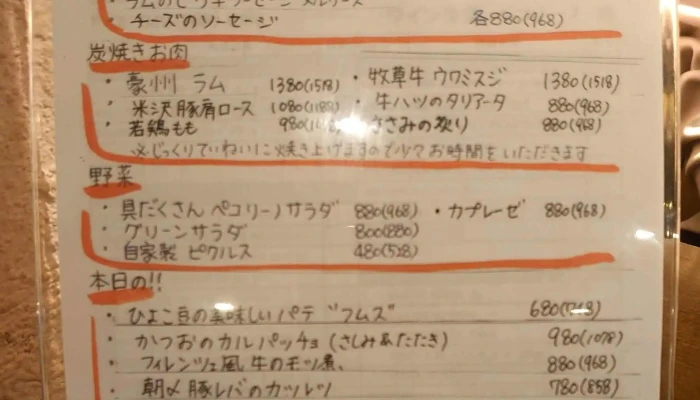 チーズのソーセージ 各880(968)
炭焼きお肉
・豪州 ラム 1380(1518) ・牧草牛 ウワミスジ 1380(1518)
米沢豚肩ロース 1080(1188) ・牛ハツのタリアータ 880(968)
若鶏もも ささみの炙り 880(968)
※じっくりていねいに焼き上げますので少々お時間をいただきます
野菜
・具だくさん ペコリーノサラダ 880(968) ・カプレーゼ 880(968)
・グリーンサラダ 800(880)
・自家製 ピクルス 480(528)
本日の!!
・ひよこ豆の美味しいパテ "フムス" 680(748)
・かつおのカルパッチョ(さしみ&たたき) 980(1078)
・フィレンツェ風 牛のモツ煮、 880(968)
・朝〆豚レバのカツレツ 780(858)